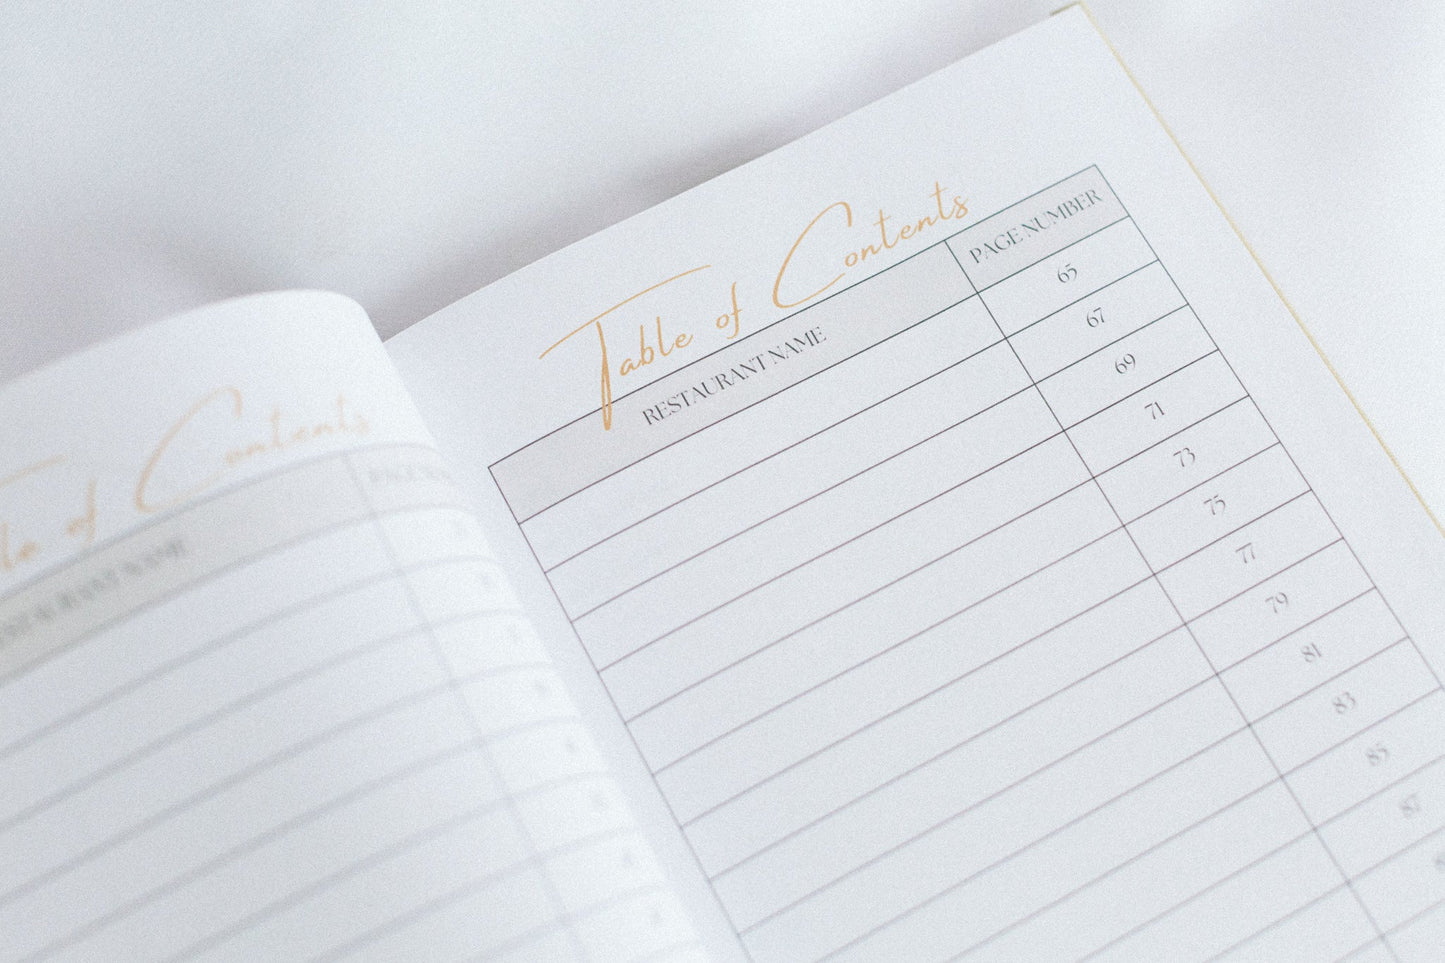 le of Contents
RESTAURANT NAME
PAGE
Table of Contents
RESTAURANT NAME
PAGE NUMBER
65
67
69
71
73
75
77
79
81
83
85
87